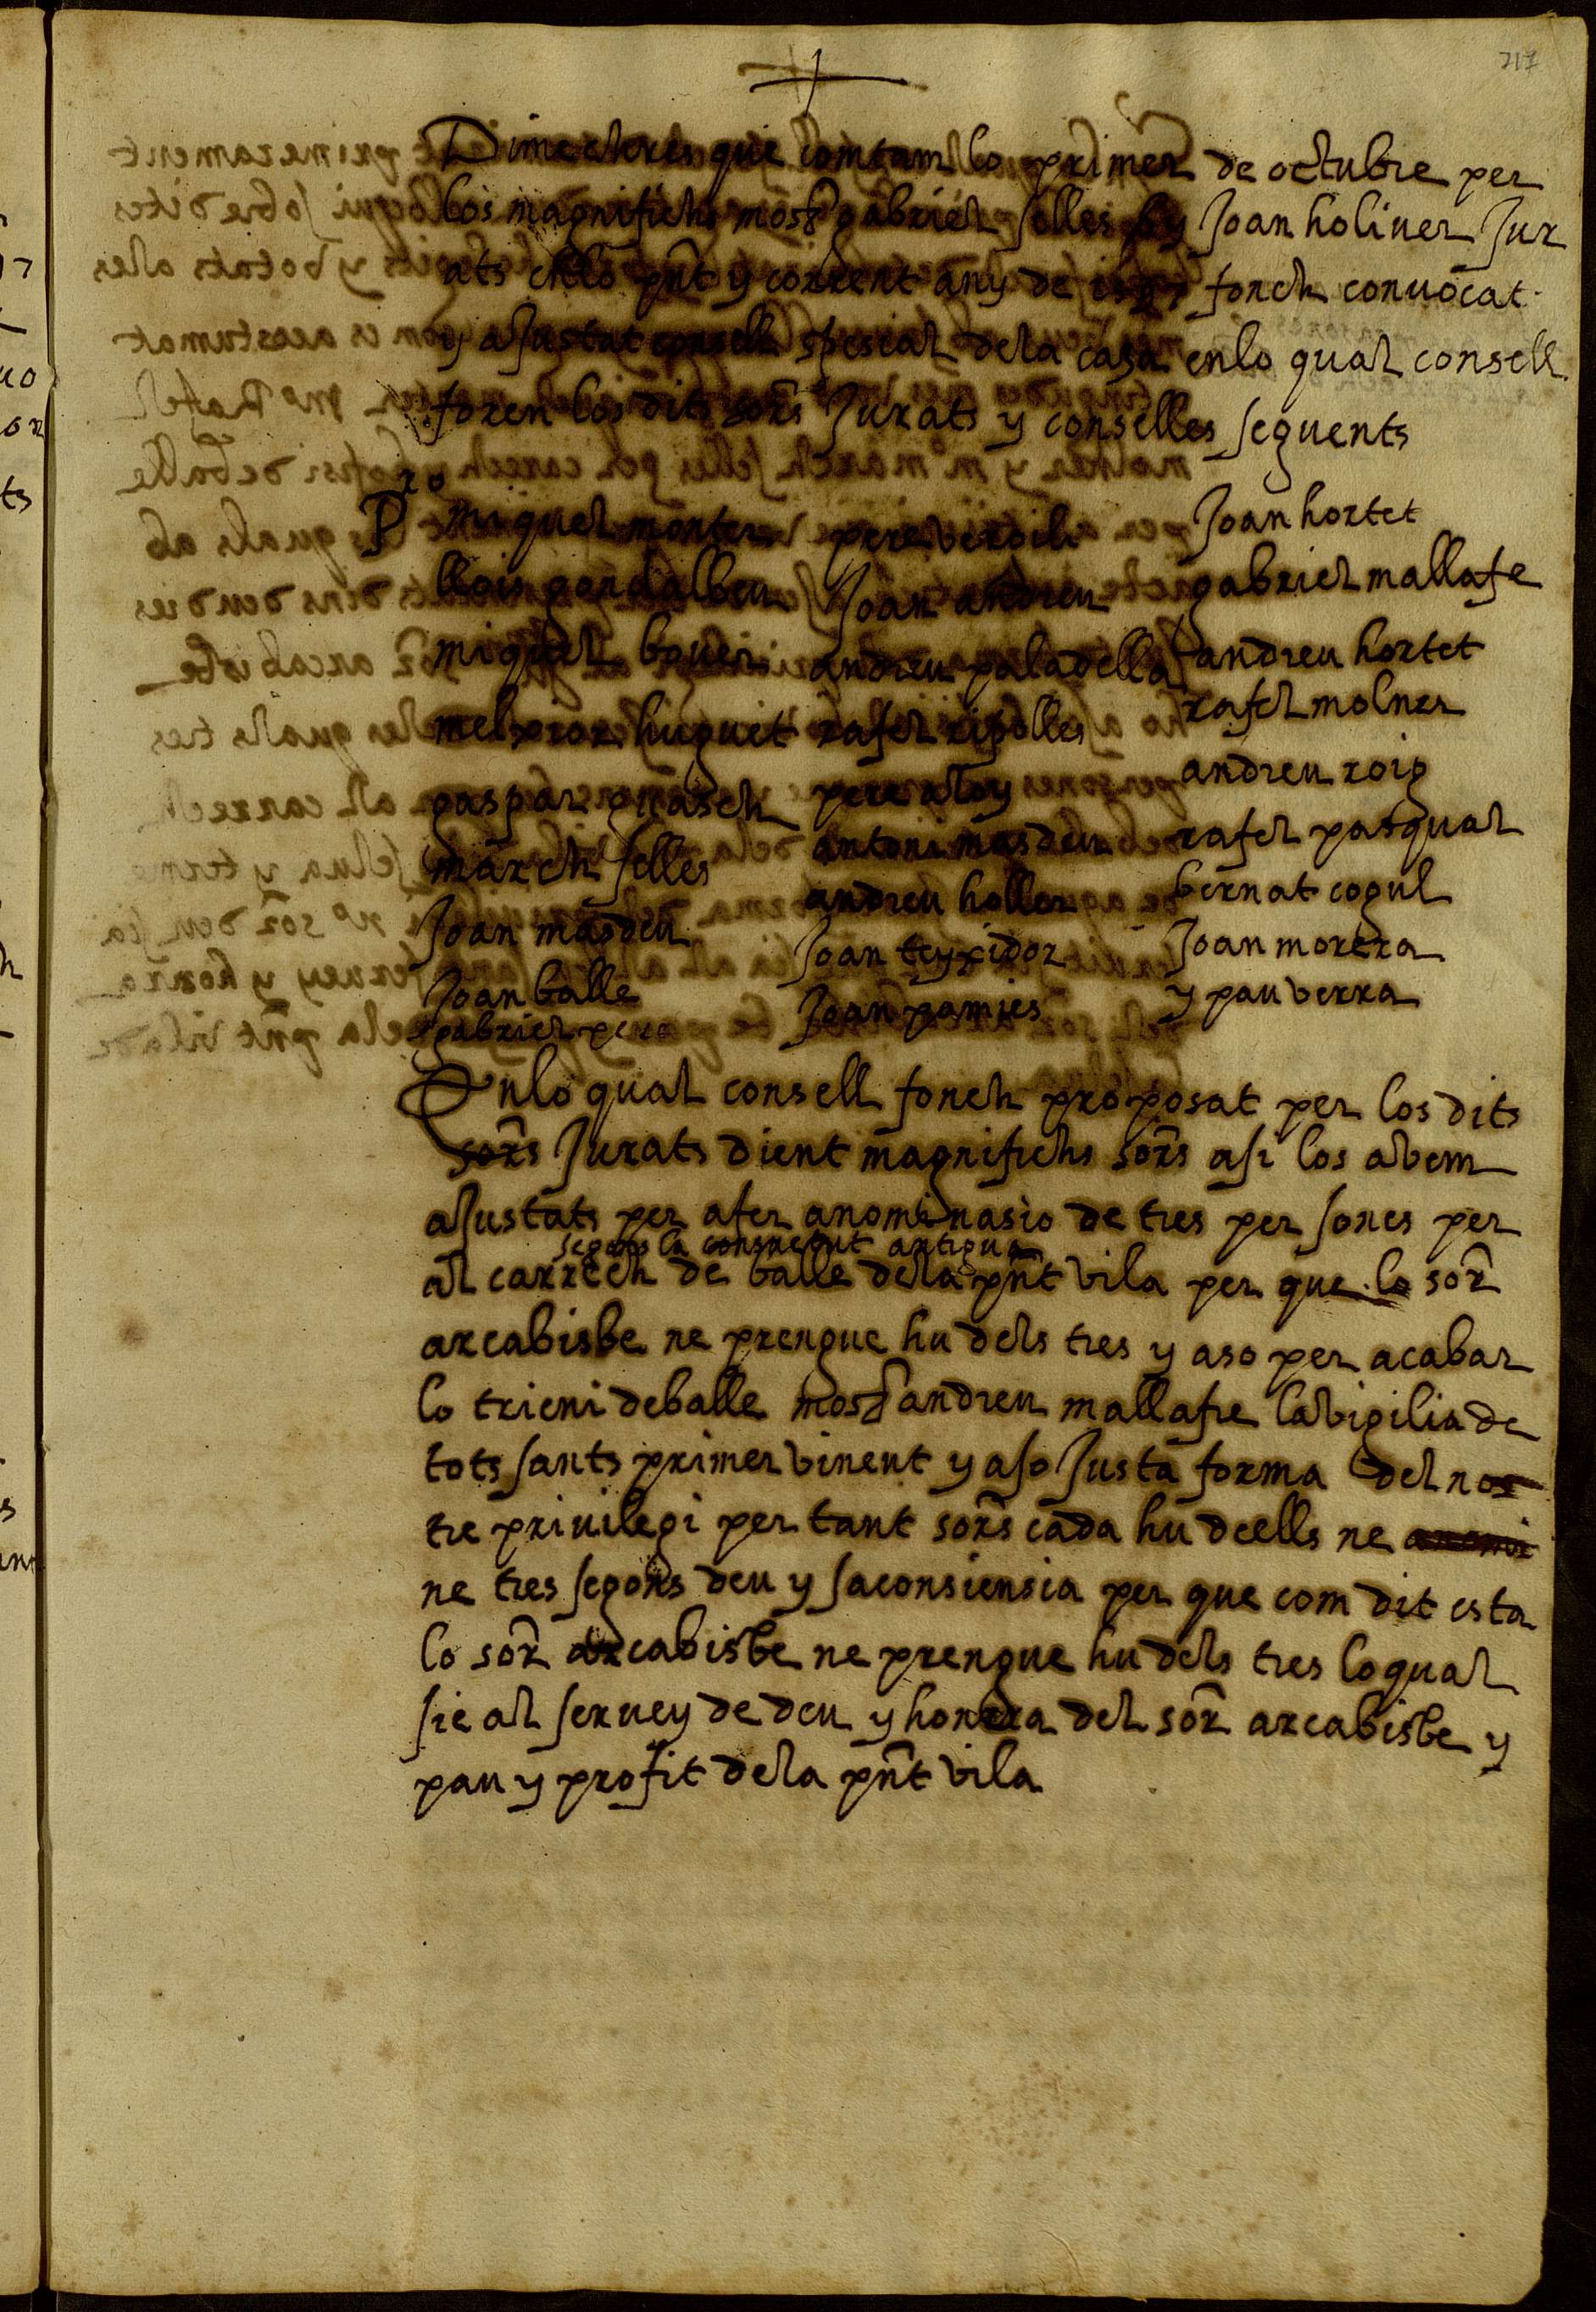 217
Dimechres que comtam lo primer de octubre per
los magnifichs mosr gabriel selles y Joan holiuer Jur
ats enlo pnt y corrent any de fonch conuocat
y aJustat consell spesial dela casa enlo qual consell
foren los dits sors Jurats y conselles seguents
Pro miquel monter pere verdili Joan hortet
llois gondalbeu Joan andreu gabriel mallafe
miquel bouer andreu paladella andreu hortet
melxior huguet rafel ripolles rafel molner
gaspar guasch pere aloy andreu roig
march selles antoni masdeu rafel pasqual
Joan masdeu andreu holler bernat cogul
Joan balle Joan teyxidor Joan morera
gabriel pere Joan pamies y pau verra
Enlo qual consell fonch proposat per los dits
sors Jurats dient magnifichs sors asi los abem
aJustats per afer anominasio de tres persones per
segons la consuetut antigua
al carrech de balle dela pnt vila per que lo sor
arcabisbe ne prengue hu dels tres y aso per acabar
lo trieni deballe mosr andreu mallafre labigilia de
tots sants primer vinent y aso Justa forma del nos
tre priuilegi per tant sors cada hu dells ne anomi
ne tres segons deu y saconsiensia per que com dit esta
lo sor arcabisbe ne prengue hu dels tres loqual
sie al seruey de deu y honrra del sor arcabisbe y
pau y profit dela pnt vila